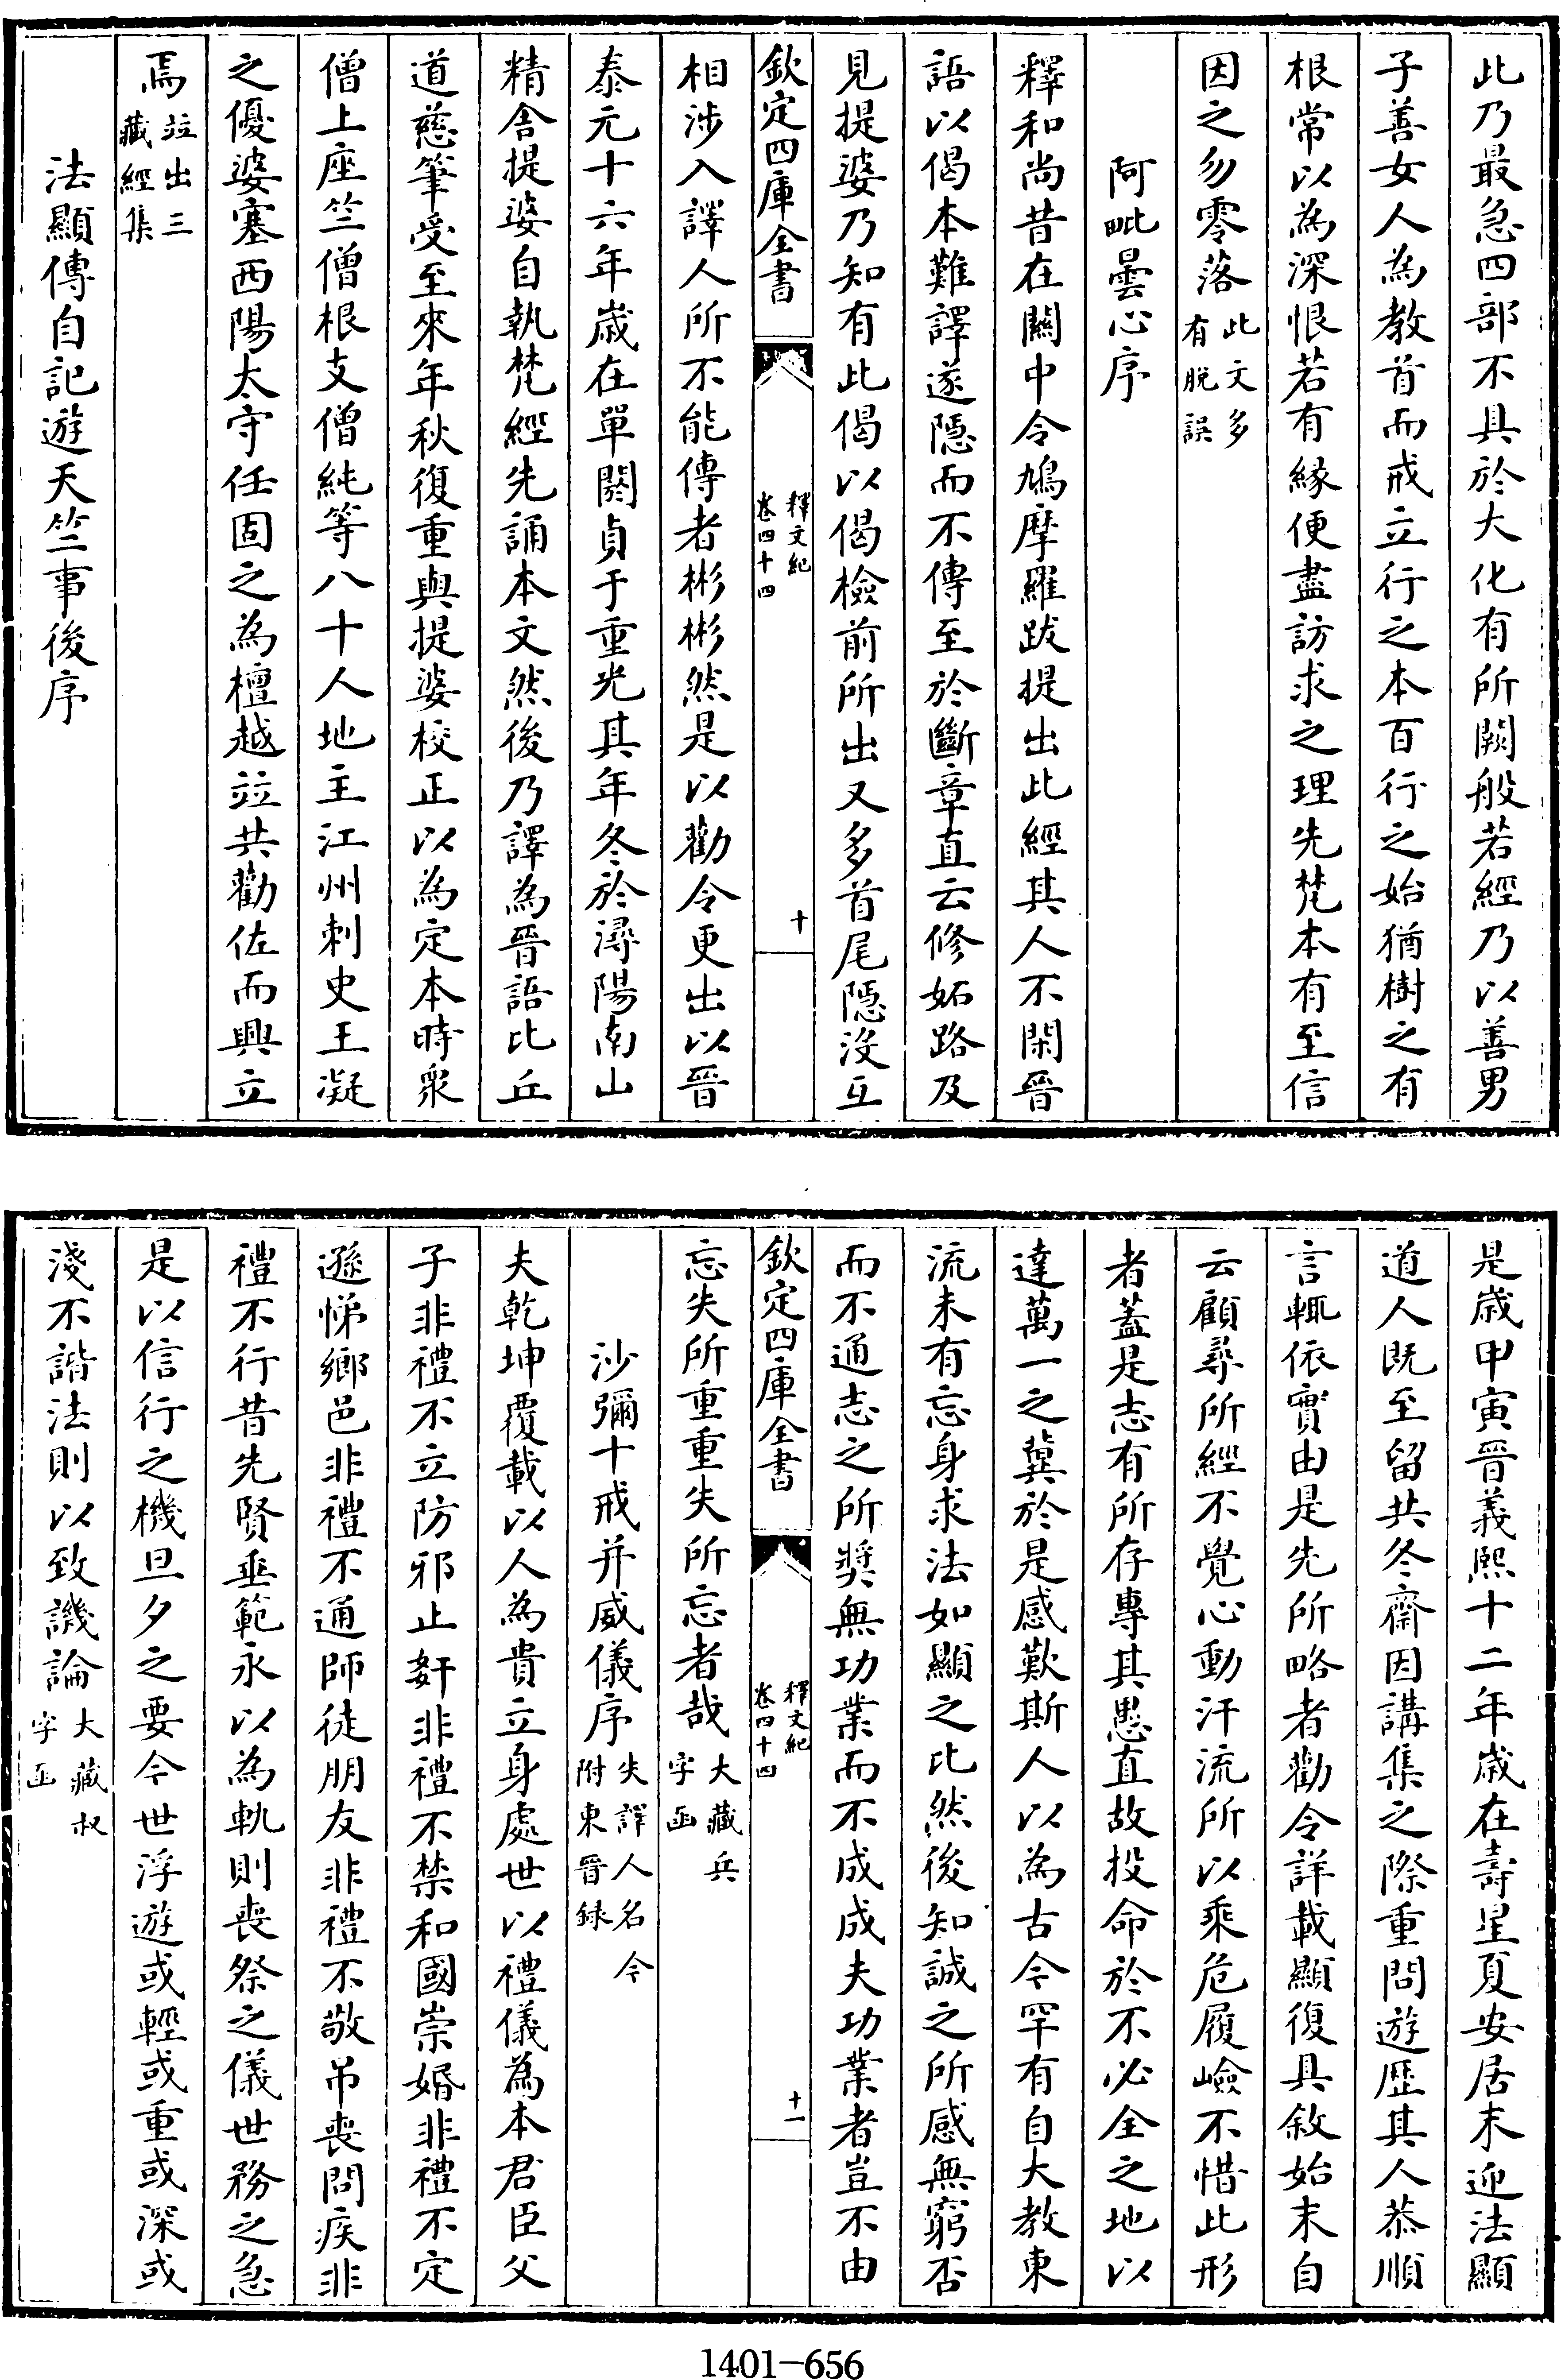 此乃最急四部不具於大化有所闕般若經乃以善男
子善女人為教首而戒立行之本百行之始猶樹之有
根常以為深恨若有緣便盡訪求之理先梵本有至信
因之勿零落此文多
有脫誤
阿毗曇心序
釋和尚昔在關中令鳩摩羅跋提出此經其人不閑晉
語以偈本難譯遂隱而不傳至於斷章直云修妬路及
見提婆乃知有此偈以偈檢前所出又多首尾隱沒互
欽定四庫全書
釋文紀
卷四十四
十
相涉入譯人所不能傳者彬彬然是以勸令更出以晉
泰元十六年歲在單閼貞于重光其年冬於潯陽南山
精舍提婆自執梵經先誦本文然後乃譯為晉語比丘
道慈筆受至來年秋復重與提婆校正以為定本時衆
僧上座竺僧根支僧純等八十人地主江州刺史王凝
之優婆塞西陽太守任固之為檀越竝共勸佐而興立
焉竝出三
藏經集
法顯傳自記遊天竺事後序
是歲甲寅晉義熙十二年歲在壽星夏安居末迎法顯
道人既至留共冬齋因講集之際重問遊歷其人恭順
言輒依實由是先所略者勸令詳載顯復具敘始末自
云顧尋所經不覺心動汗流所以乘危履嶮不惜此形
者蓋是志有所存專其愚直故投命於不必全之地以
達萬一之冀於是感歎斯人以為古今罕有自大教東
流未有忘身求法如顯之比然後知誠之所感無窮否
而不通志之所獎無功業而不成成夫功業者豈不由
欽定四庫全書
釋文紀
卷四十四
十一
忘失所重重失所忘者哉大藏兵
字函
沙彌十戒并威儀序失譯人名今
附東晉録
夫乾坤覆載以人為貴立身處世以禮儀為本君臣父
子非禮不立防邪止姧非禮不禁和國崇婚非禮不定
遜悌鄉邑非禮不通師徒朋友非禮不敬吊喪問疾非
禮不行昔先賢垂範永以為軌則喪祭之儀世務之急
是以信行之機旦夕之要今世浮遊或輕或重或深或
淺不諧法則以致譏論大藏叔
字函
1401-656